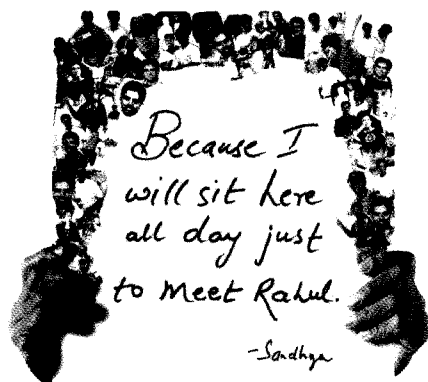 Because I
will sit here
all day just
to meet Rahul.
-Sandhya